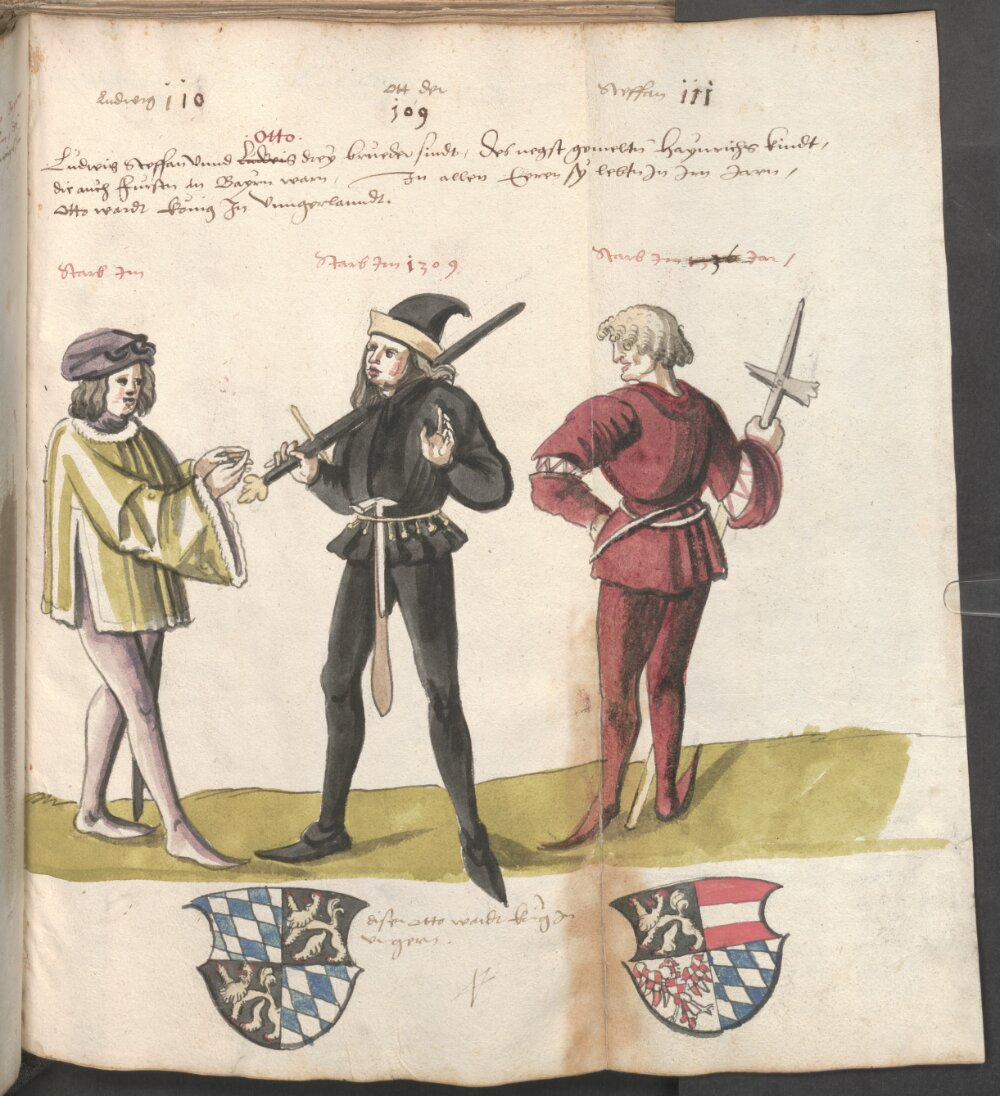 Ludwig 110
Ott der
109
Steffan 111
Otto.
Ludwig Steffan Unnd Ludwig drey brueder sindt, des negst gemeltn Haynrichs kindt,
die auch Fursten In Bayrn warn, In allen Eeren sy lebtn In Irn Jarn,
Otto wardt künig In Unngerlanndt.
Starb Im
Starb Im 1309
Starb Im 1336 Jar,
diser Otto wardt künig In
ungern.